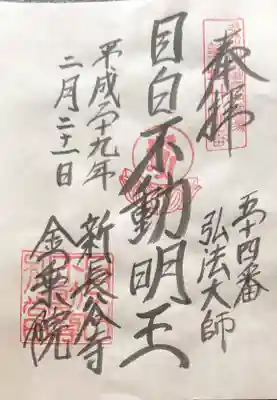 奉拝
五十四番
弘法大師
目白不動明王
新長谷寺
金乗院
平成二十九年
二月二十一日